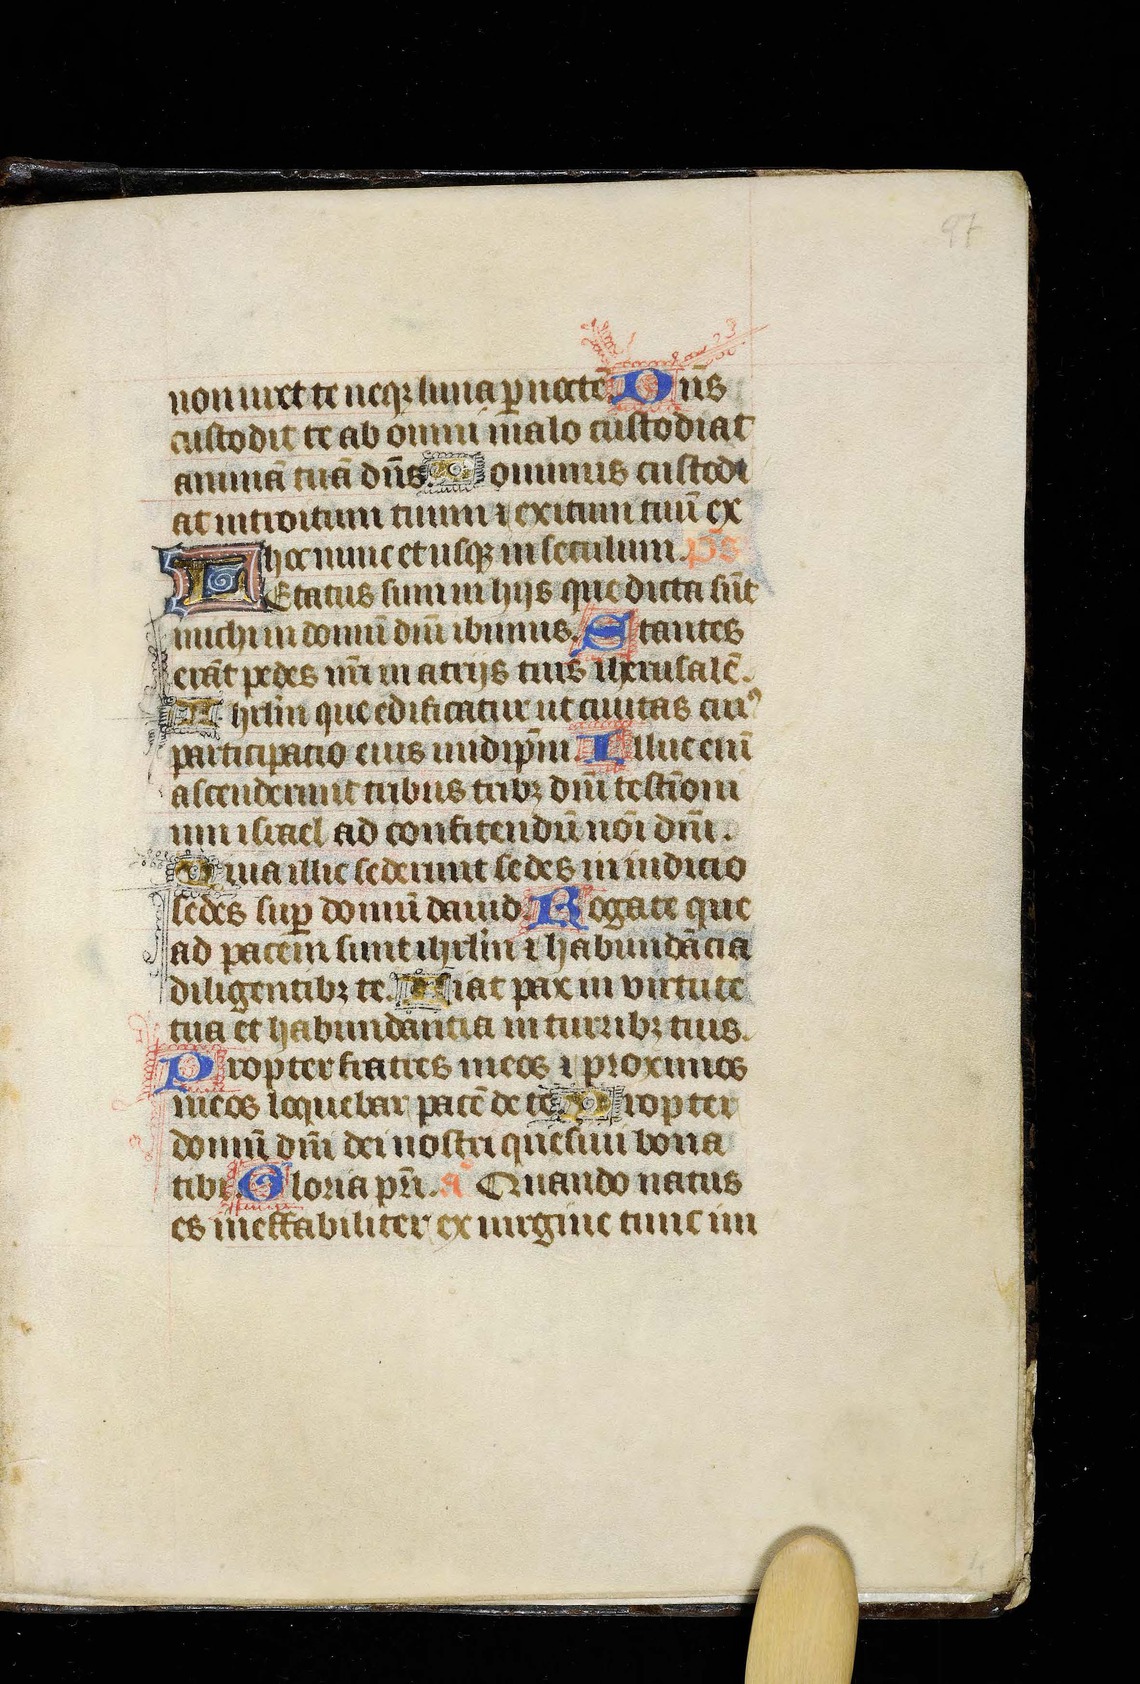 97
non uret te neqꝫ luna ꝑ noctē. Dn̄s
custodit te ab omni malo custodiat
animā tuā dn̄s. Dominus custodi
at introitum tuum ⁊ exitum tuū ex
hoc nunc et usqꝫ in seculum. p̄s
Letatus sum in hijs que dicta sūt
michi in domū dn̄i ibimus. Stantes
erāt pedes nr̄i in atrijs tuis iherusalē.
Ihrl̄m que edificatur ut ciuitas cuiꝰ
participatio eius in idip̄m. Illuc eni
ascenderunt tribus tribꝫ dn̄i testīoni
um israel ad confitendū nōi dn̄i.
Quia illic sederunt sedes in iudicio
sedes suꝑ domū dauid. Rogate que
ad pacem sunt ihrl̄m ⁊ habundācia
diligentibꝫ te. Fiat pax in uirtute
tua et habundantia in turribꝫ tuis.
Propter fratres meos ⁊ proximos
meos loquebar pacē de te. Propter
domū dn̄i dei nostri quesiui bona
tibi. Gloria pr̄i. a Quando natus
es ineffabiliter ex uirgine tunc im